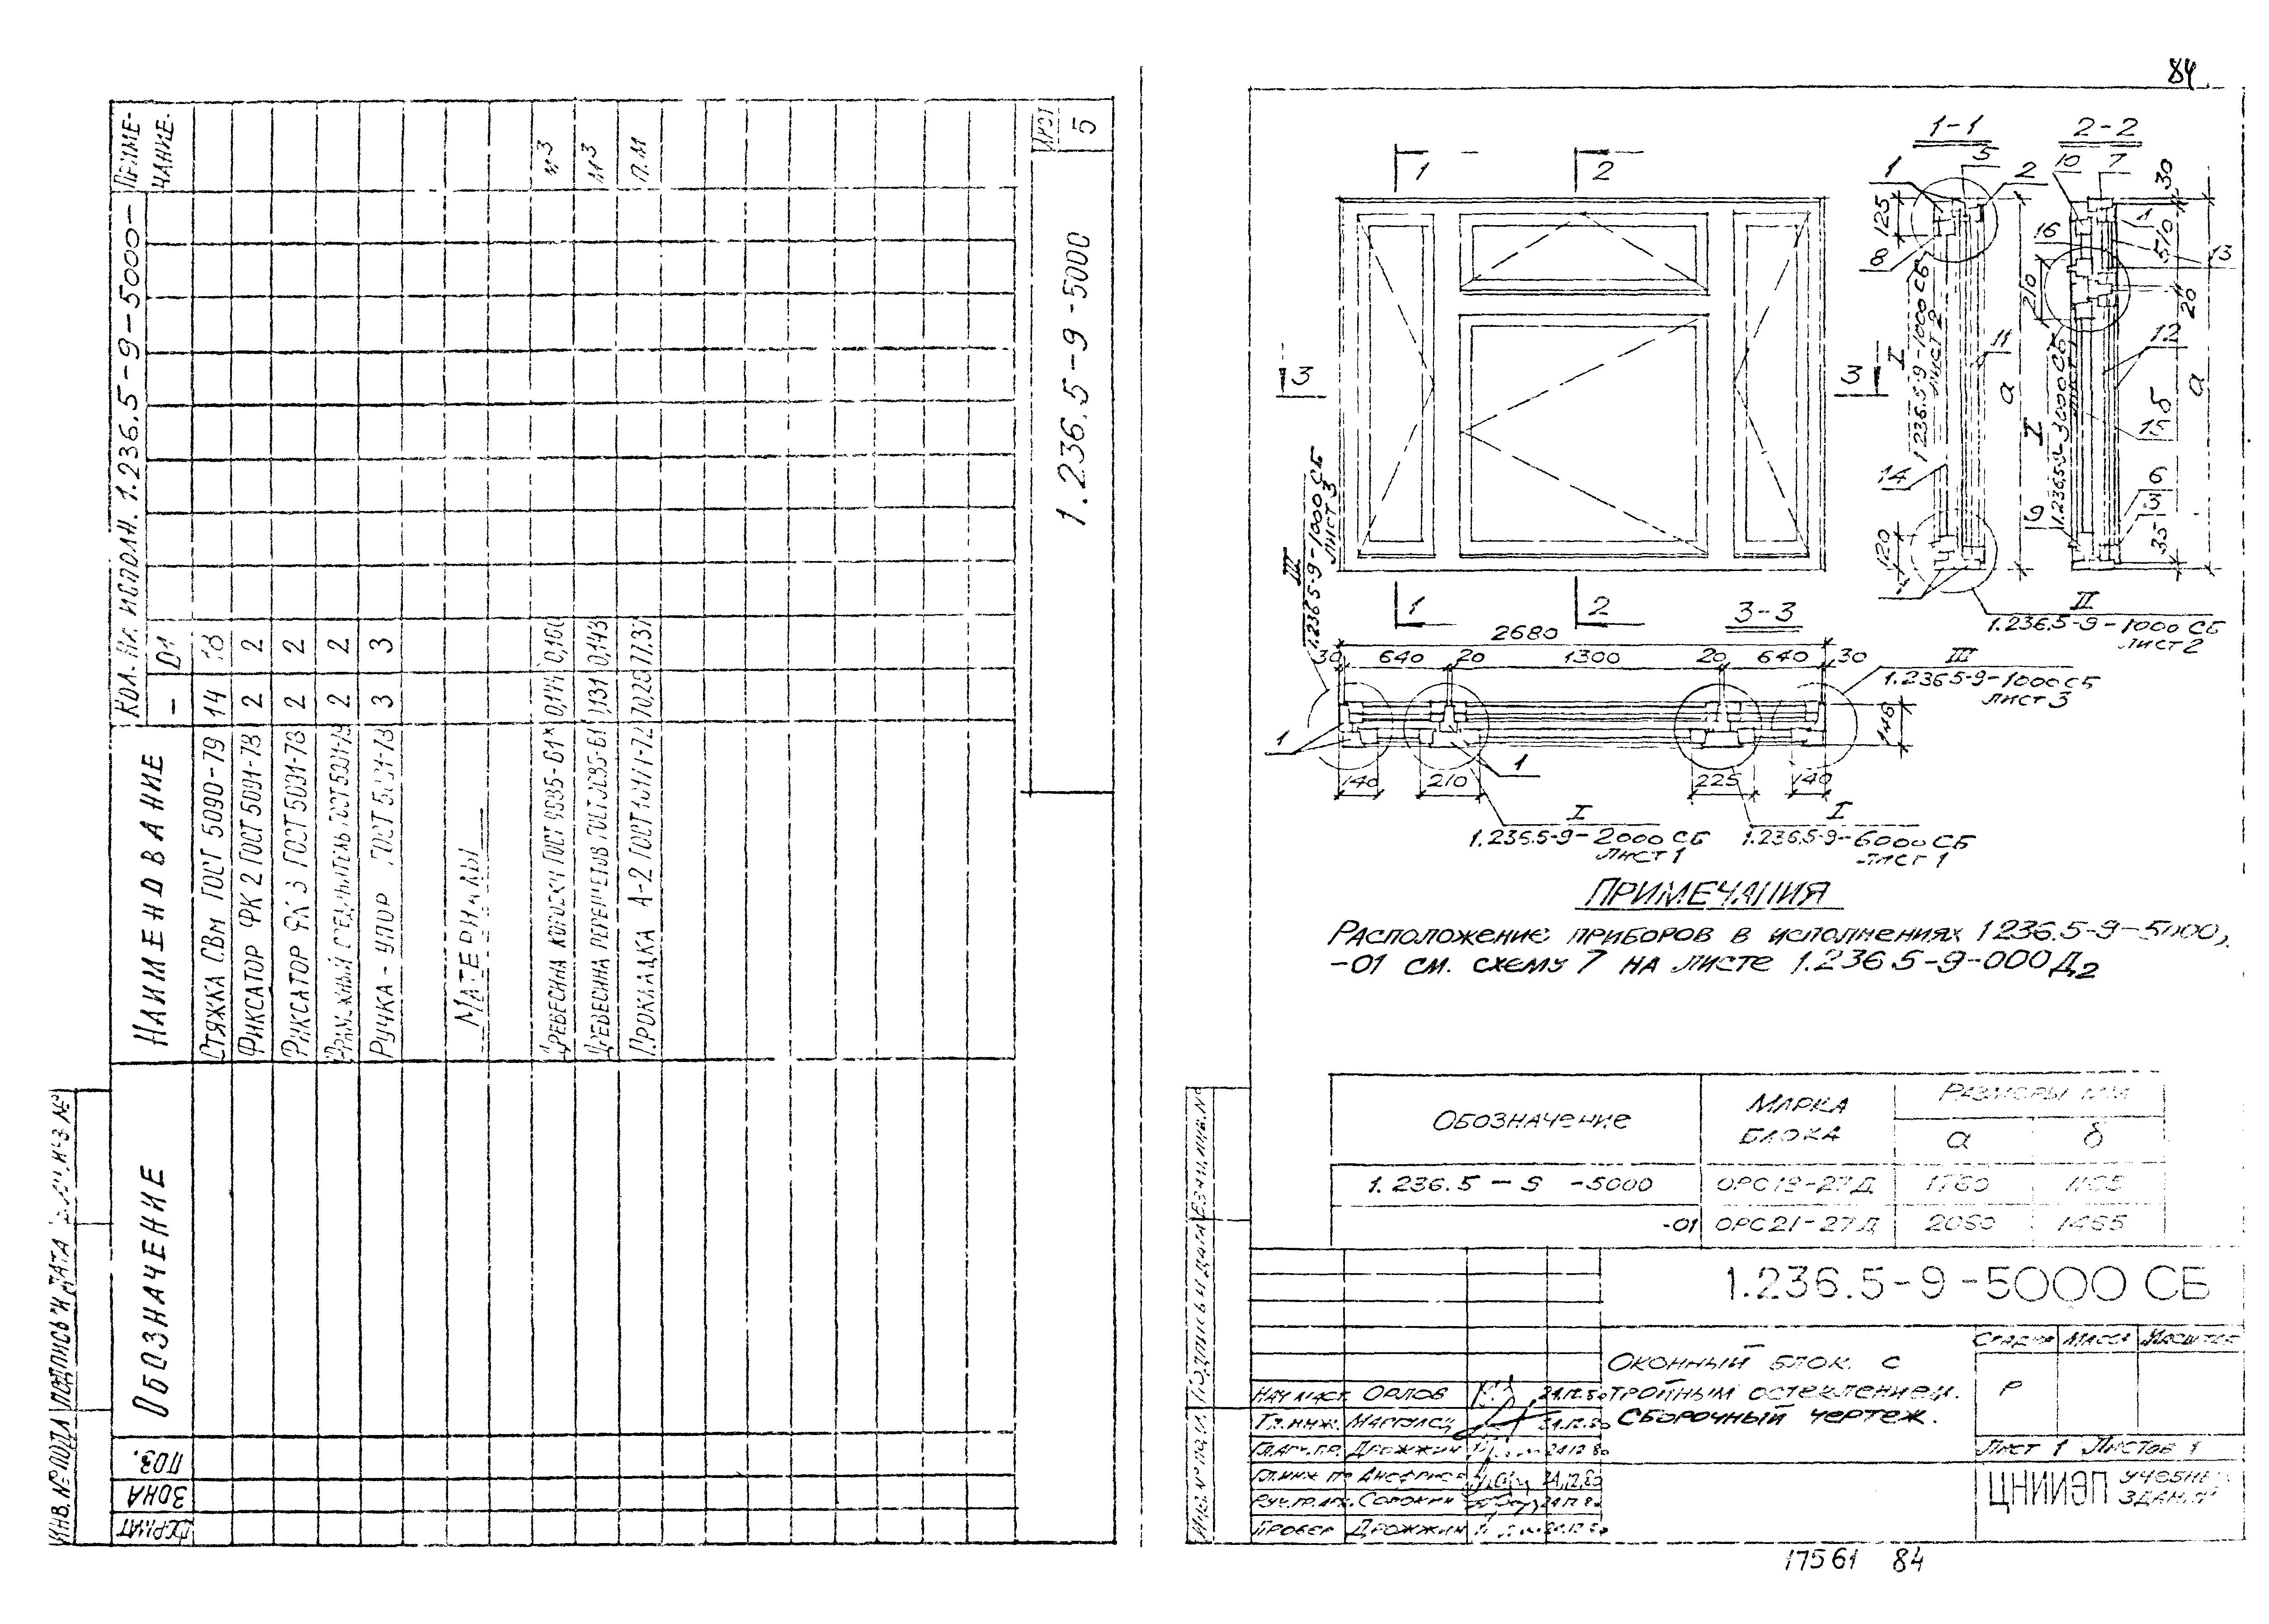 Приме-
чание
Кол. на исполн. 1.236.5-9-5000-
- 01
Наименование
Обозначение
Поз.
Зона
Формат
Стяжка СВм ГОСТ 5090-79 14 18
Фиксатор ФК 2 ГОСТ 5091-78 2 2
Фиксатор ФК 3 ГОСТ 5091-78 2 2
2 2
Ручка-упор ГОСТ 5091-78 3 3
Материалы
Древесина коробки 0,160 м³
Древесина переплетов 0,143 м³
Прокладка А-2 п.м
1.236.5-9-5000
Лист
5
Инв. № подл. Подпись и дата
84
1 2
3 3
1 2
1-1
1 5 2
125
8
I
1.236.5-9-1000 СБ
лист 2
11
а
14
120
1
II
1.236.5-9-1000 СБ
лист 2
2-2
10 7
30
1
16
510
13
210
20
I
1.236.5-9-3000 СБ
лист 1
12
15
б
а
9
6
3
35
III
1.236.5-9-1000 СБ
лист 3
3-3
2680
30 640 20 1300 20 640 30
III
1.236.5-9-1000 СБ
лист 3
146
1
1
140 210 225 140
I
1.236.5-9-2000 СБ
лист 1
I
1.236.5-9-6000 СБ
лист 1
Примечания
Расположение приборов в исполнениях 1.236.5-9-5000,
-01 см. схему 7 на листе 1.236.5-9-000 Д2
Обозначение Марка блока Размеры мм
а б
1.236.5-9 -5000 ОРС18-27Д 1760 1165
-01 ОРС21-27Д 2060 1465
1.236.5-9-5000 СБ
Оконный блок с
тройным остеклением.
Сборочный чертеж.
Стадия Масса Масштаб
Р
Лист 1 Листов 1
ЦНИИЭП учебных
зданий
Нач. маст. Орлов 24.12.80
Гл. инж. 24.12.80
Гл. арх. пр. Дрожжин 24.12.80
Гл. инж. пр. 24.12.80
Рук. гр. арх. Сорокин 24.12.80
Провер. Дрожжин 24.12.80
Инв. № подл. Подпись и дата Взам. инв. №
17561 84